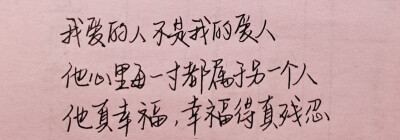 我爱的人不是我的爱人
他心里每一寸都属于另一个人
他真幸福,幸福得真残忍